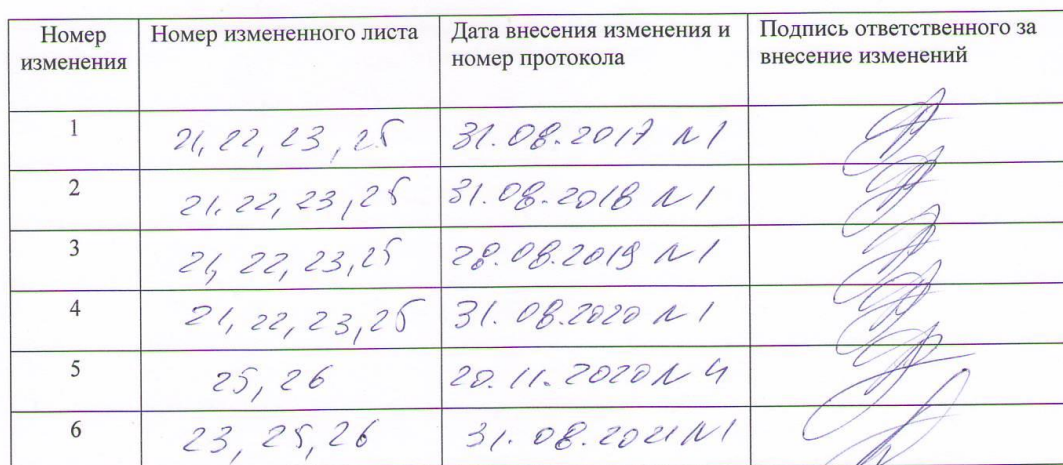 Номер изменения
Номер измененного листа
Дата внесения изменения и номер протокола
Подпись ответственного за внесение изменений
1 21, 22, 23, 25 31.08.2017 N1
2 21, 22, 23, 25 31.08.2018 N1
3 21, 22, 23, 25 28.08.2019 N1
4 21, 22, 23, 25 31.08.2020 N1
5 25, 26 20.11.2020 N 4
6 23, 25, 26 31.08.2021 N1